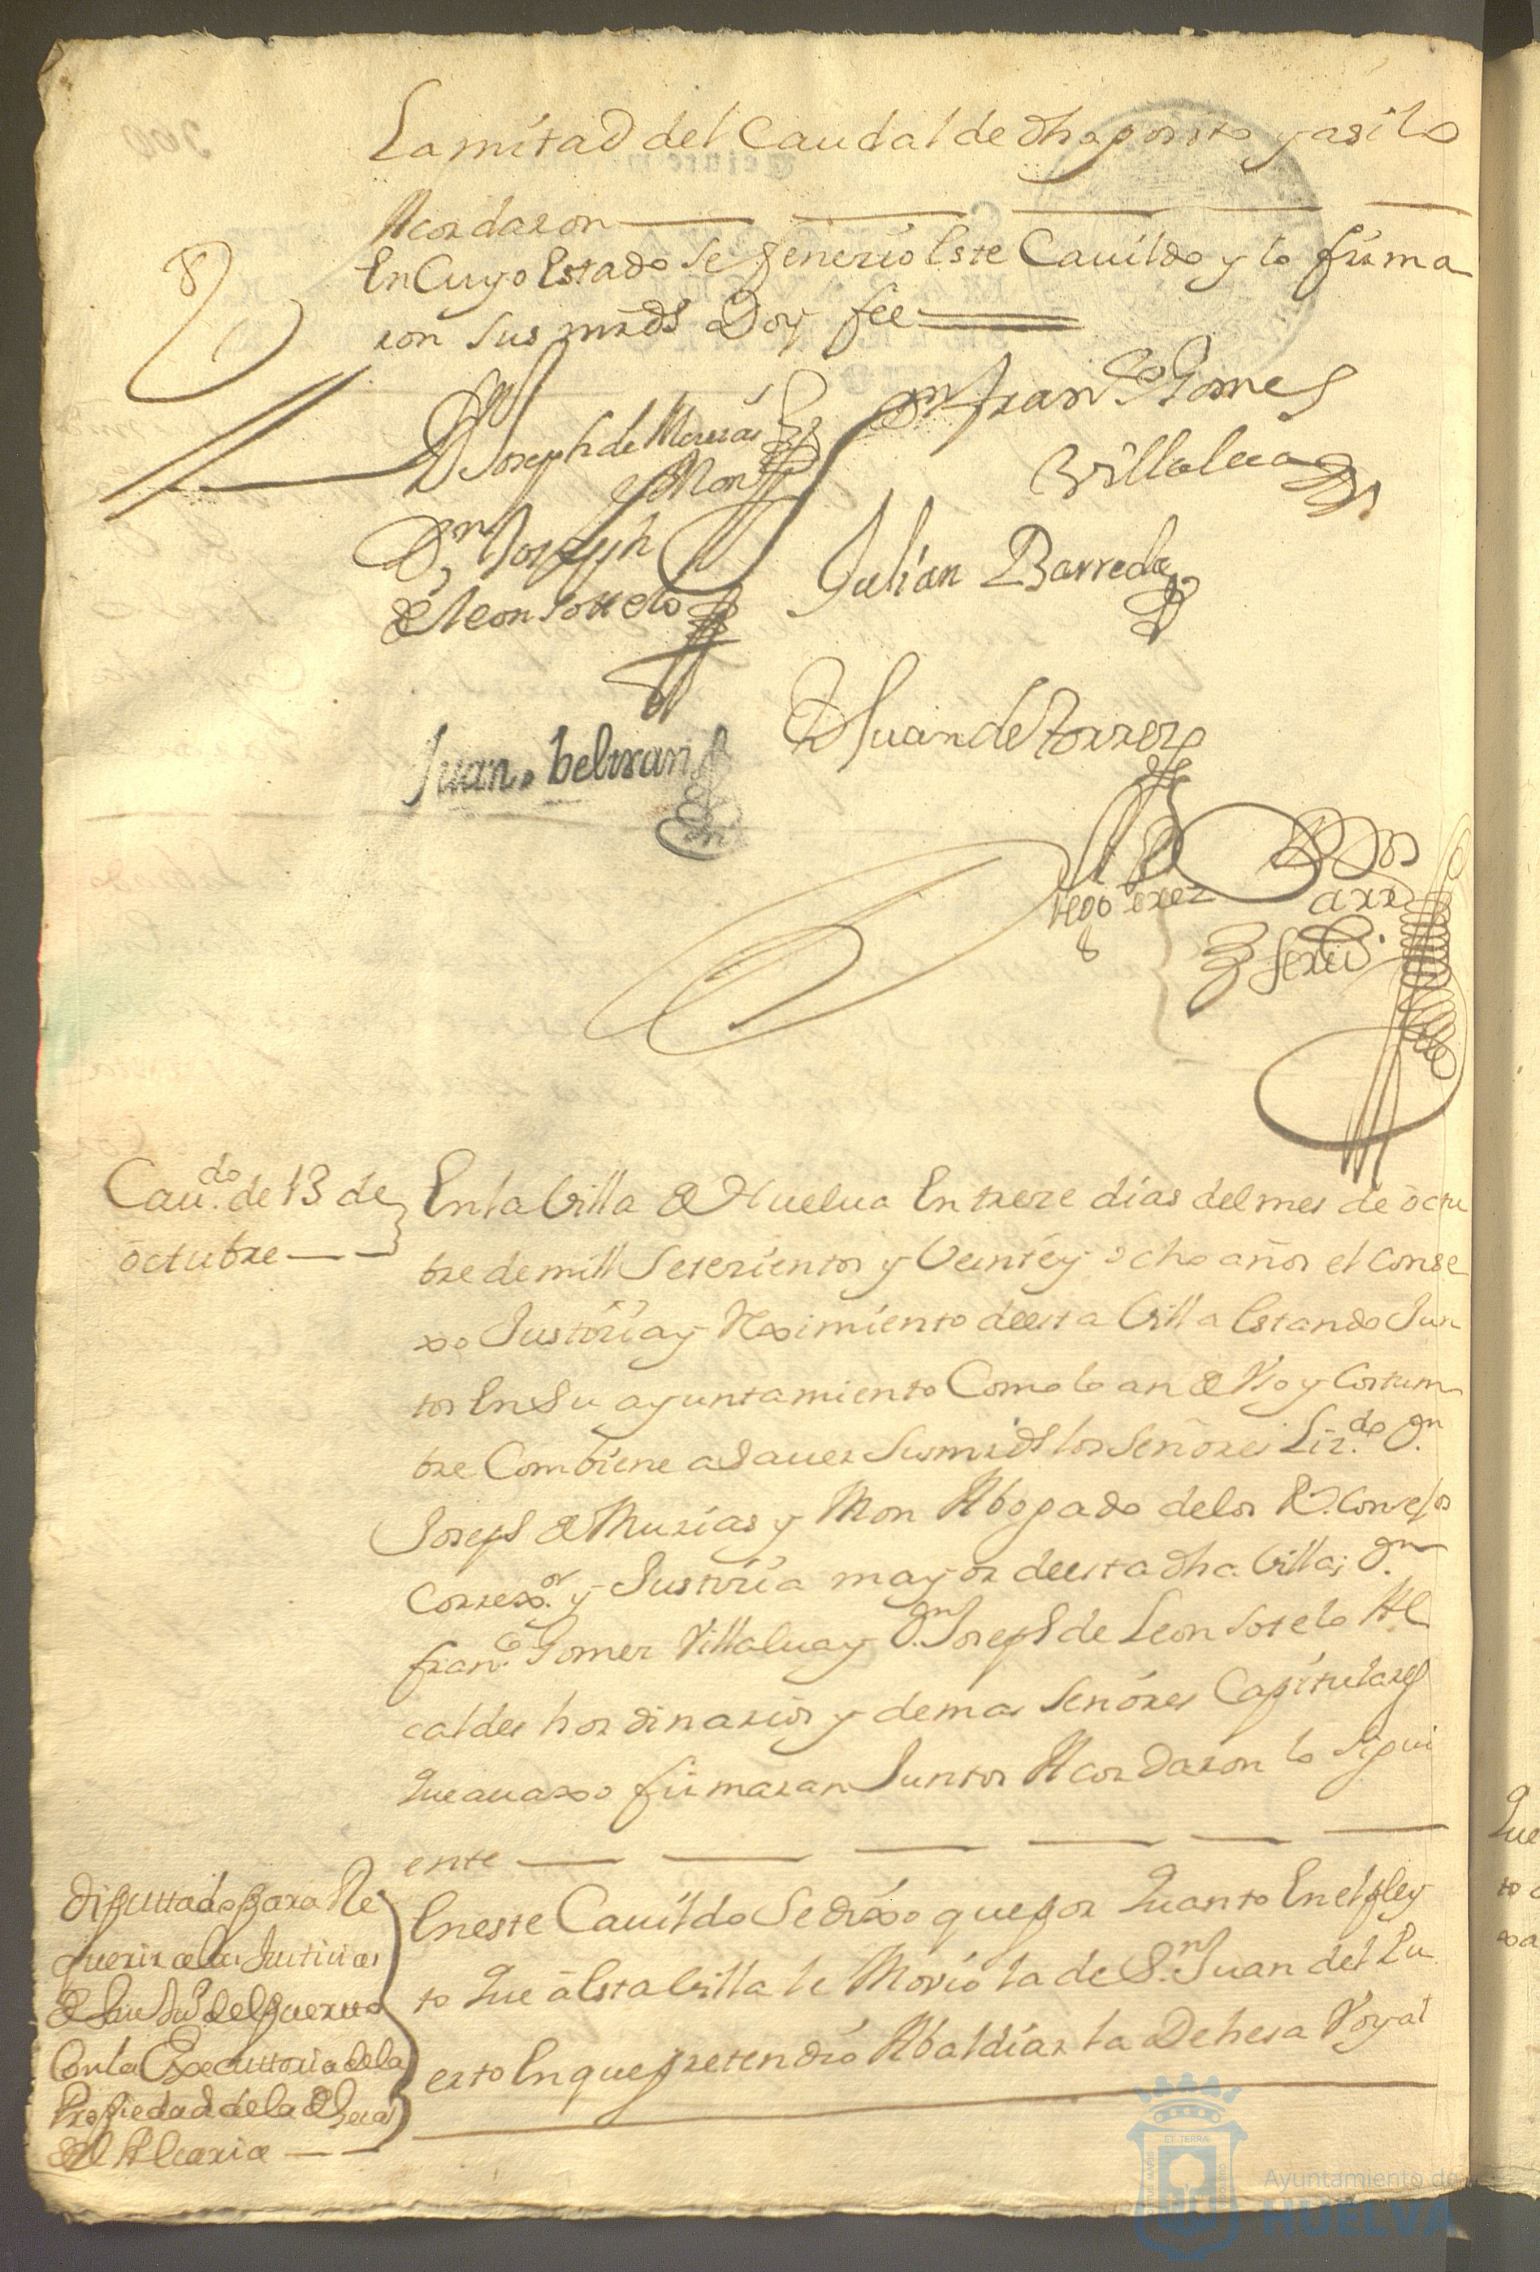 La mitad del Caudal de dho posito y asi lo
Acordaron
En Cuyo Estado se fenezio Este Cauildo y lo firma
ron sus mrds Doy fee
Dn Joseph de Murias
y Mon
Dn Franco Gomes
Villalua
Dn Joseph
de Leon Sotelo
Julian Barreda
Juan beltran
D Juan de Torres
Diego Perez
SSno
Caudo. de 13 de
octubre
En la Villa de Huelua En treze dias del mes de octu
bre de mill Setezientos y Veinte y ocho años el Conse
xo Justizia y Reximiento de esta Villa Estando Jun
tos En Su ayuntamiento Como lo an de Vso y Costum
bre Combiene a Sauer Sus mrds los Señores Lizdo. Dn.
Joseph de Murias y Mon Abogado de los Rs. Consejos
Correxor. y Justizia mayor de esta dha Villa; Dn.
Franco. Gomez Villalua y Dn. Joseph de Leon Sotelo Al
caldes hordinarios y demas Señores Capitulares
que auaxo firmaran Juntos Acordaron lo Sigui
ente
Diputtado para Re
querir a las Justicias
de San Jun del puerto
Con la Executtoria de la
Propiedad de la Dhesa
del Alcaria
En este Cauildo Se dixo que por quanto En el pley
to que a Esta Villa le Movio la de Sn. Juan del Pu
erto En que pretendio Abaldiar la Dehesa Boyal
ET TERRAE
Ayuntamiento de
HUELVA